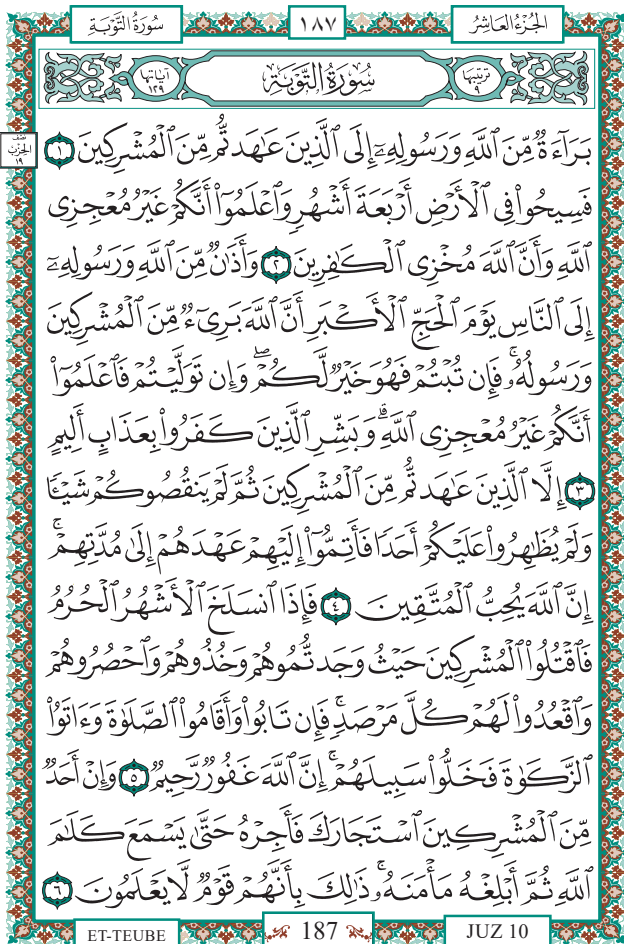 سُورَةُ التَّوْبَةِ
١٨٧
الجُزْءُ العَاشِرُ
آيَاتُهَا ١٢٩
سُورَةُ التَّوْبَةِ
تَرْتِيبُهَا ٩
نصف الحِزْب ١٩
بَرَآءَةٌ مِّنَ ٱللَّهِ وَرَسُولِهِۦٓ إِلَى ٱلَّذِينَ عَٰهَدتُّم مِّنَ ٱلْمُشْرِكِينَ ١
فَسِيحُوا۟ فِى ٱلْأَرْضِ أَرْبَعَةَ أَشْهُرٍ وَٱعْلَمُوٓا۟ أَنَّكُمْ غَيْرُ مُعْجِزِى
ٱللَّهِ وَأَنَّ ٱللَّهَ مُخْزِى ٱلْكَٰفِرِينَ ٢ وَأَذَٰنٌ مِّنَ ٱللَّهِ وَرَسُولِهِۦٓ
إِلَى ٱلنَّاسِ يَوْمَ ٱلْحَجِّ ٱلْأَكْبَرِ أَنَّ ٱللَّهَ بَرِىٓءٌ مِّنَ ٱلْمُشْرِكِينَ
وَرَسُولُهُۥ ۚ فَإِن تُبْتُمْ فَهُوَ خَيْرٌ لَّكُمْ ۖ وَإِن تَوَلَّيْتُمْ فَٱعْلَمُوٓا۟
أَنَّكُمْ غَيْرُ مُعْجِزِى ٱللَّهِ ۗ وَبَشِّرِ ٱلَّذِينَ كَفَرُوا۟ بِعَذَابٍ أَلِيمٍ
٣ إِلَّا ٱلَّذِينَ عَٰهَدتُّم مِّنَ ٱلْمُشْرِكِينَ ثُمَّ لَمْ يَنقُصُوكُمْ شَيْـًٔا
وَلَمْ يُظَٰهِرُوا۟ عَلَيْكُمْ أَحَدًا فَأَتِمُّوٓا۟ إِلَيْهِمْ عَهْدَهُمْ إِلَىٰ مُدَّتِهِمْ ۚ
إِنَّ ٱللَّهَ يُحِبُّ ٱلْمُتَّقِينَ ٤ فَإِذَا ٱنسَلَخَ ٱلْأَشْهُرُ ٱلْحُرُمُ
فَٱقْتُلُوا۟ ٱلْمُشْرِكِينَ حَيْثُ وَجَدتُّمُوهُمْ وَخُذُوهُمْ وَٱحْصُرُوهُمْ
وَٱقْعُدُوا۟ لَهُمْ كُلَّ مَرْصَدٍ ۚ فَإِن تَابُوا۟ وَأَقَامُوا۟ ٱلصَّلَوٰةَ وَءَاتَوُا۟
ٱلزَّكَوٰةَ فَخَلُّوا۟ سَبِيلَهُمْ ۚ إِنَّ ٱللَّهَ غَفُورٌ رَّحِيمٌ ٥ وَإِنْ أَحَدٌ
مِّنَ ٱلْمُشْرِكِينَ ٱسْتَجَارَكَ فَأَجِرْهُ حَتَّىٰ يَسْمَعَ كَلَٰمَ
ٱللَّهِ ثُمَّ أَبْلِغْهُ مَأْمَنَهُۥ ۚ ذَٰلِكَ بِأَنَّهُمْ قَوْمٌ لَّا يَعْلَمُونَ ٦
ET-TEUBE
187
JUZ 10